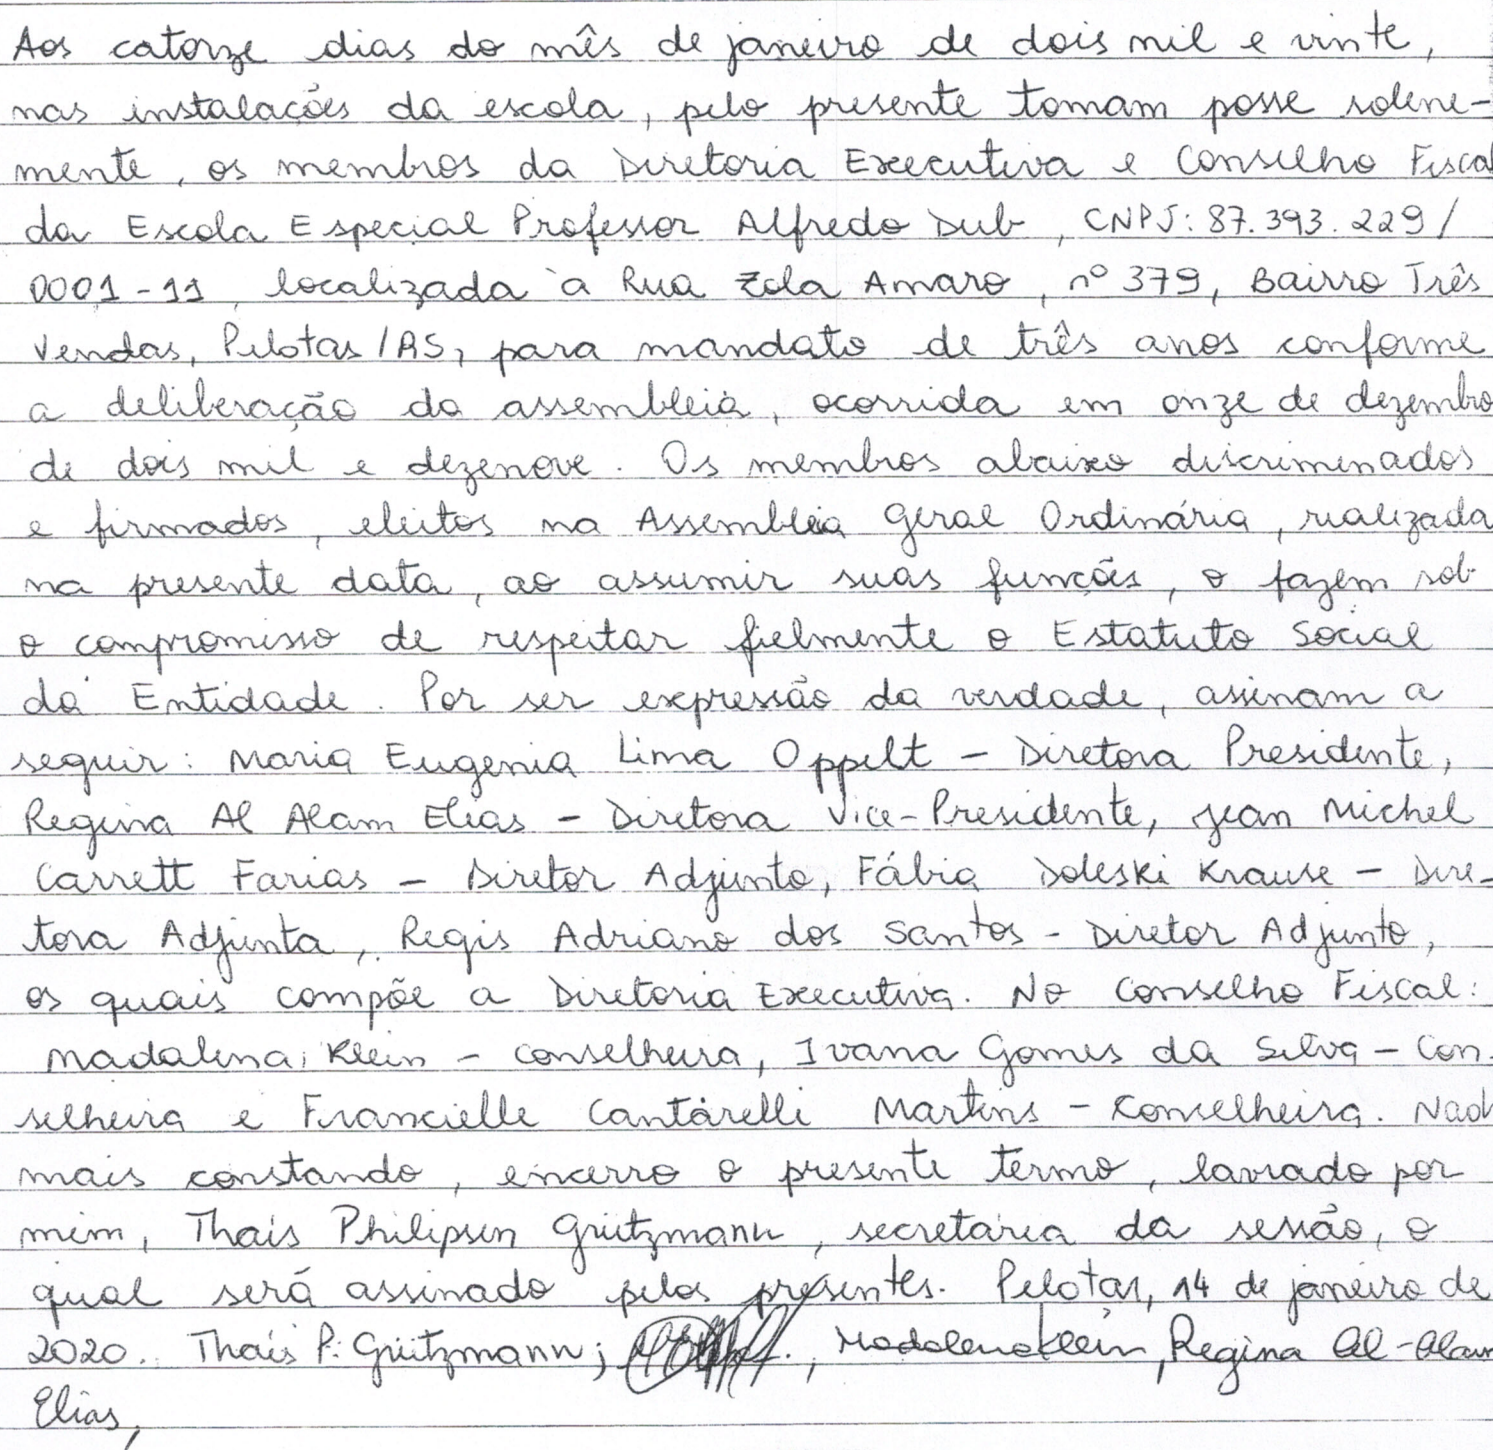 Aos catorze dias do mês de janeiro de dois mil e vinte,
nas instalações da escola, pelo presente tomam posse solene-
mente, os membros da Diretoria Executiva e Conselho Fiscal
da Escola Especial Professor Alfredo Dub, CNPJ: 87.393.229/
0001-11, localizada à Rua Zola Amaro, nº 379, Bairro Três
Vendas, Pelotas/RS, para mandato de três anos conforme
a deliberação da assembleia, ocorrida em onze de dezembro
de dois mil e dezenove. Os membros abaixo discriminados
e firmados, eleitos na Assembleia Geral Ordinária, realizada
na presente data, ao assumir suas funções, o fazem sob
o compromisso de respeitar fielmente o Estatuto Social
da Entidade. Por ser expressão da verdade, assinam a
seguir: Maria Eugenia Lima Oppelt - Diretora Presidente,
Regina Al Alam Elias - Diretora Vice-Presidente, Jean Michel
Carrett Farias - Diretor Adjunto, Fábia Doleski Krause - Dire-
tora Adjunta, Regis Adriano dos Santos - Diretor Adjunto,
os quais compõe a Diretoria Executiva. No Conselho Fiscal:
Madalena Klein - conselheira, Ivana Gomes da Silva - Con-
selheira e Francielle Cantarelli Martins - Conselheira. Nad
mais constando, encerro o presente termo, lavrado por
mim, Thaís Philipsen Grützmann, secretária da sessão, o
qual será assinado pelos presentes. Pelotas, 14 de janeiro de
2020. Thaís P. Grützmann; Madalena Klein, Regina Al-Alam
Elias,